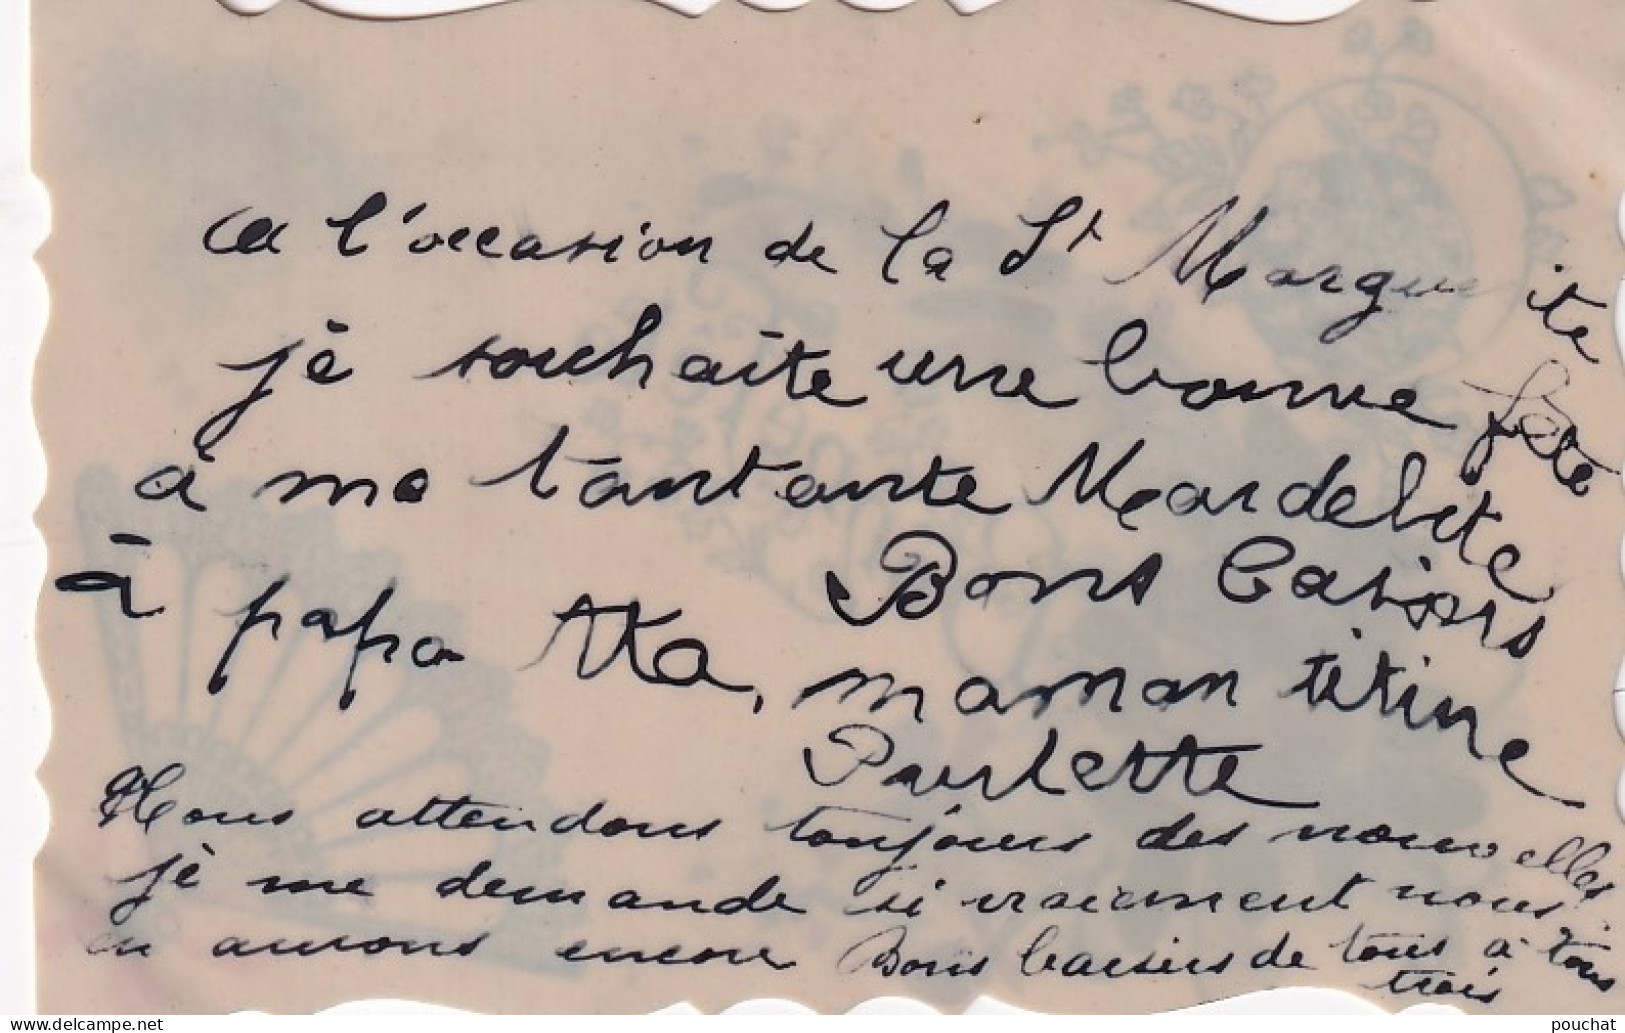 A l'occasion de la St Marguerite
je souhaite une bonne fête
à ma tantante
Bons baisers
à papa
maman titine
Paulette
Nous attendons toujours des nouvelles
je me demande si vraiment nous
en aurons encore Bons baisers de tous à tous
trois
pouchat